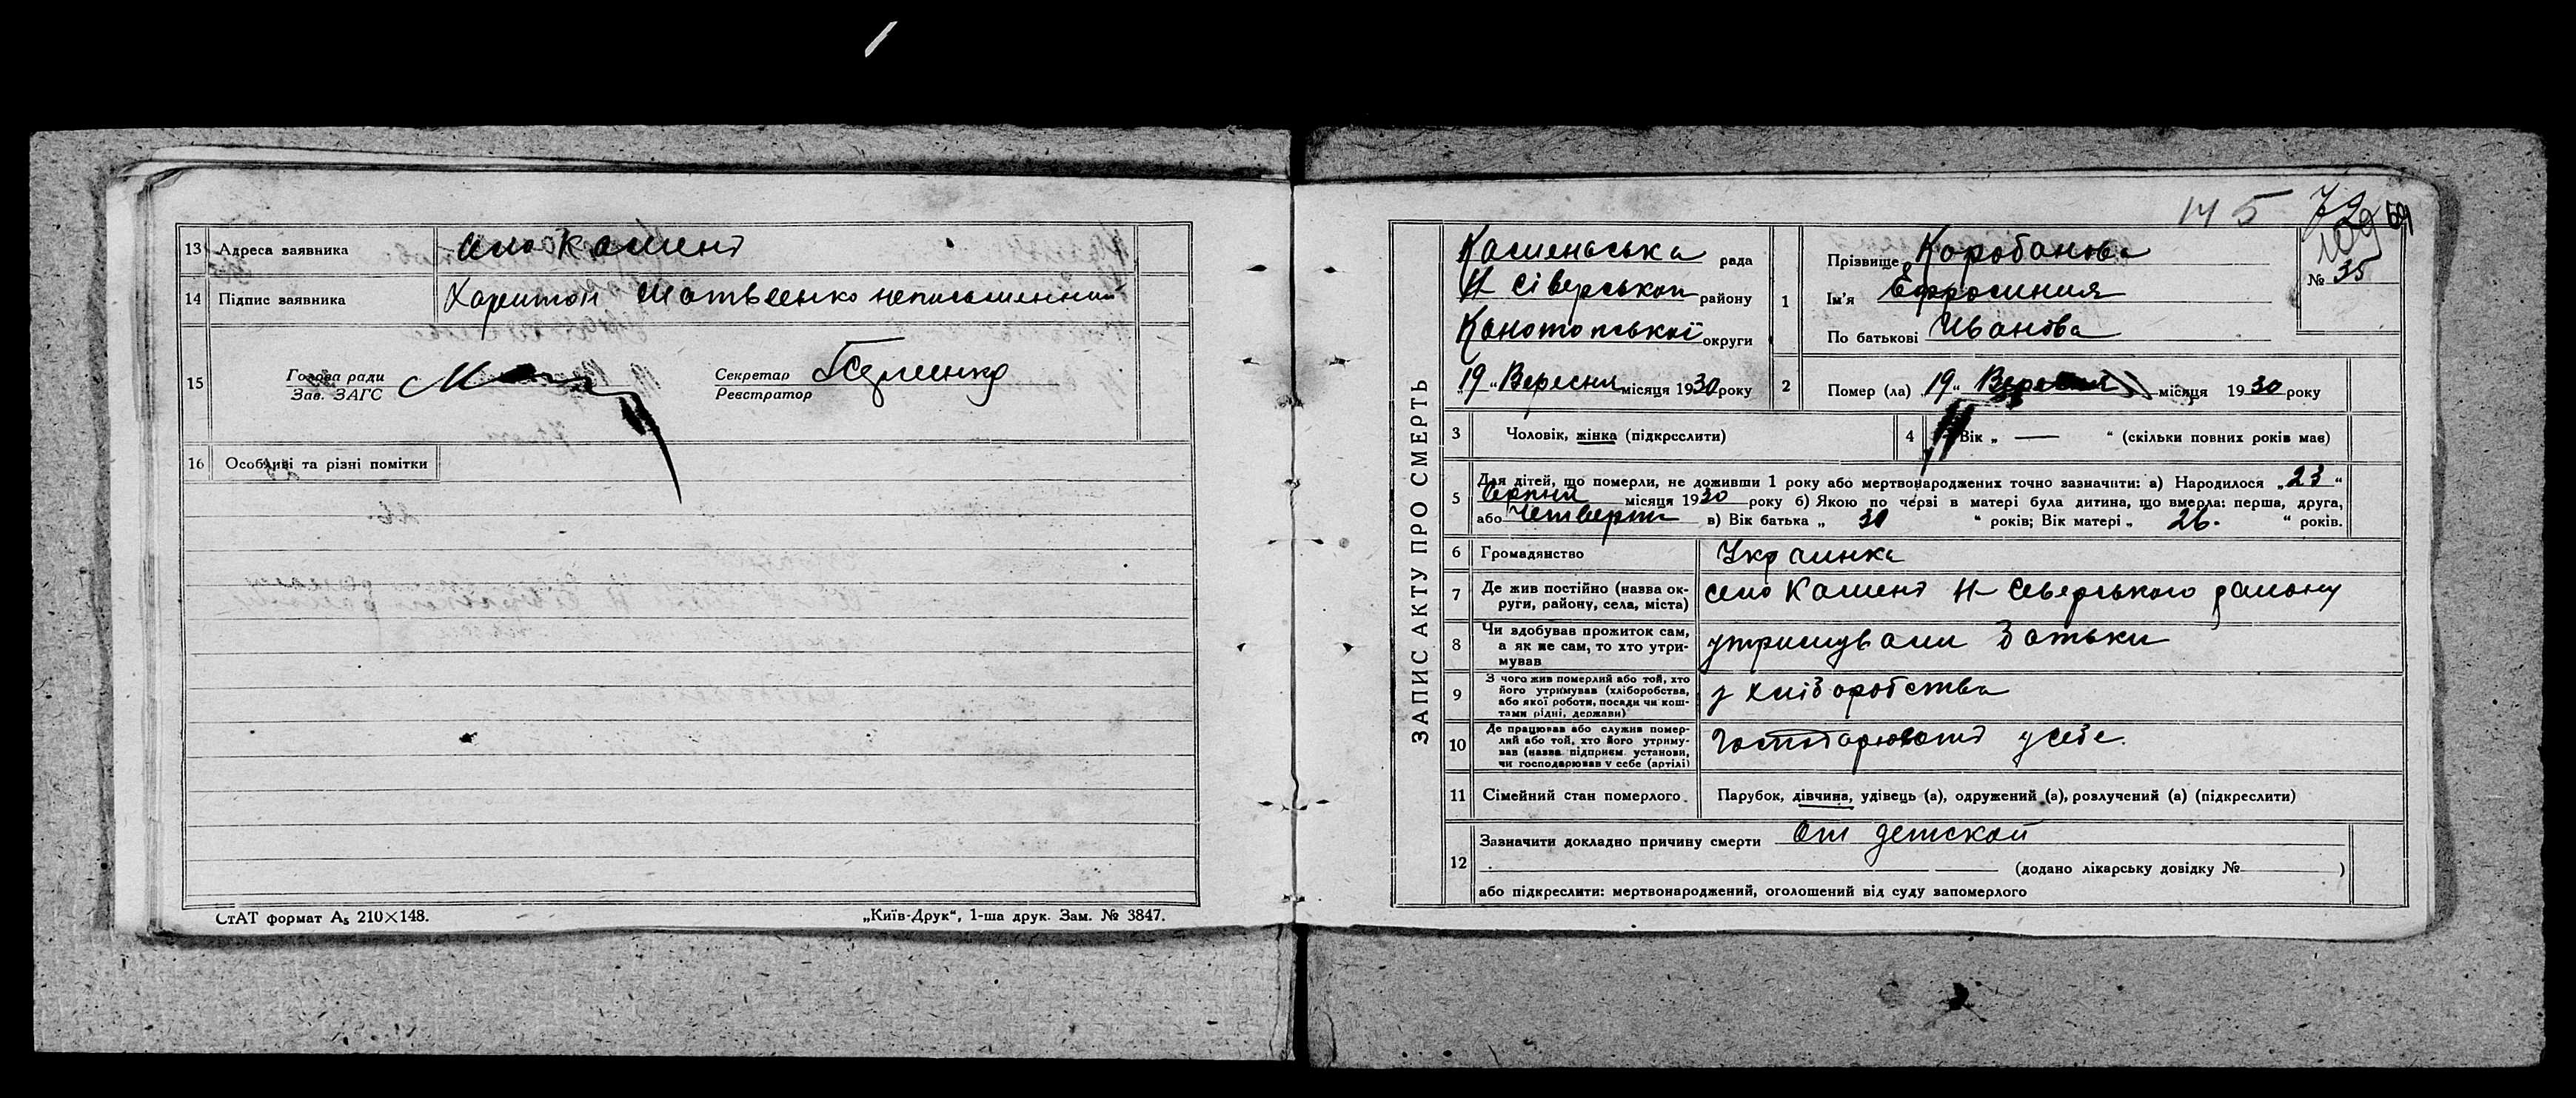 13 Адреса заявника село Камень
14 Підпис заявника Харитон Матвеенко неписьменний
15 Голова ради
Зав. ЗАГС
Секретар
Реєстратор
16 Особливі та різні помітки
СтАТ формат А5 210×148.
„Київ-Друк“, 1-ша друк. Зам. № 3847.
145 72 109
ЗАПИС АКТУ ПРО СМЕРТЬ
Каменьська рада
Н Сіверськои району
Конотопської округи
19 „ Вересня місяця 1930 року
1 Прізвище Коробанова
Ім'я Ефросиния
По батькові Иванова
№ 35
2 Помер (ла) „19“ Вересня місяця 1930 року
3 Чоловік, жінка (підкреслити)
4 Вік „ — “ (скільки повних років має)
5 Для дітей, що померли, не доживши 1 року або мертвонароджених точно зазначити: а) Народилося „23“
Серпня місяця 1930 року б) Якою по черзі в матері була дитина, що вмерла: перша, друга,
або Четверта в) Вік батька „ 30 “ років; Вік матері „ 26. “ років.
6 Громадянство Украинка
7 Де жив постійно (назва ок-
руги, району, села, міста) село Камень Н-Северського району
8 Чи здобував прожиток сам,
а як не сам, то хто утри-
мував утримували батьки
9 З чого жив померлий або той, хто
його утримував (хліборобства,
або якої роботи, посади чи кош-
тами рідні, держави) з хліборобства
10 Де працював або служив помер-
лий або той, хто його утриму-
вав (назва підприєм. установи,
чи господарював у себе (артілі) господарювати у себе.
11 Сімейний стан померлого. Парубок, дівчина, удівець (а), одружений (а), розлучений (а) (підкреслити)
12 Зазначити докладно причину смерти От детской
(додано лікарську довідку № )
або підкреслити: мертвонароджений, оголошений від суду запомерлого